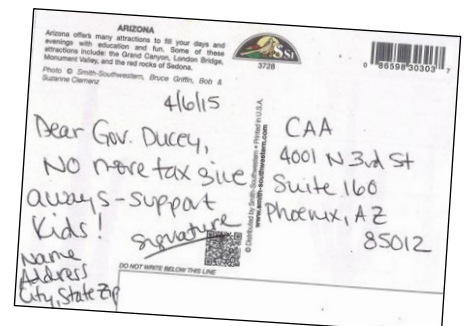 ARIZONA
Arizona offers many attractions to fill your days and
evenings with education and fun. Some of these
attractions include: the Grand Canyon, London Bridge,
Monument Valley, and the red rocks of Sedona.
Photo © Smith-Southwestern, Bruce Griffin, Bob &
Suzanne Clemenz
SSI
3728
0 86598 30303 7
4/6/15
Dear Gov. Ducey,
No more tax give
aways - support
Kids!
Signature
Name
Address
City, State Zip
© Distributed by Smith-Southwestern • Printed in U.S.A.
www.smith-southwestern.com
CAA
4001 N 3rd St
Suite 160
Phoenix, AZ
85012
DO NOT WRITE BELOW THIS LINE